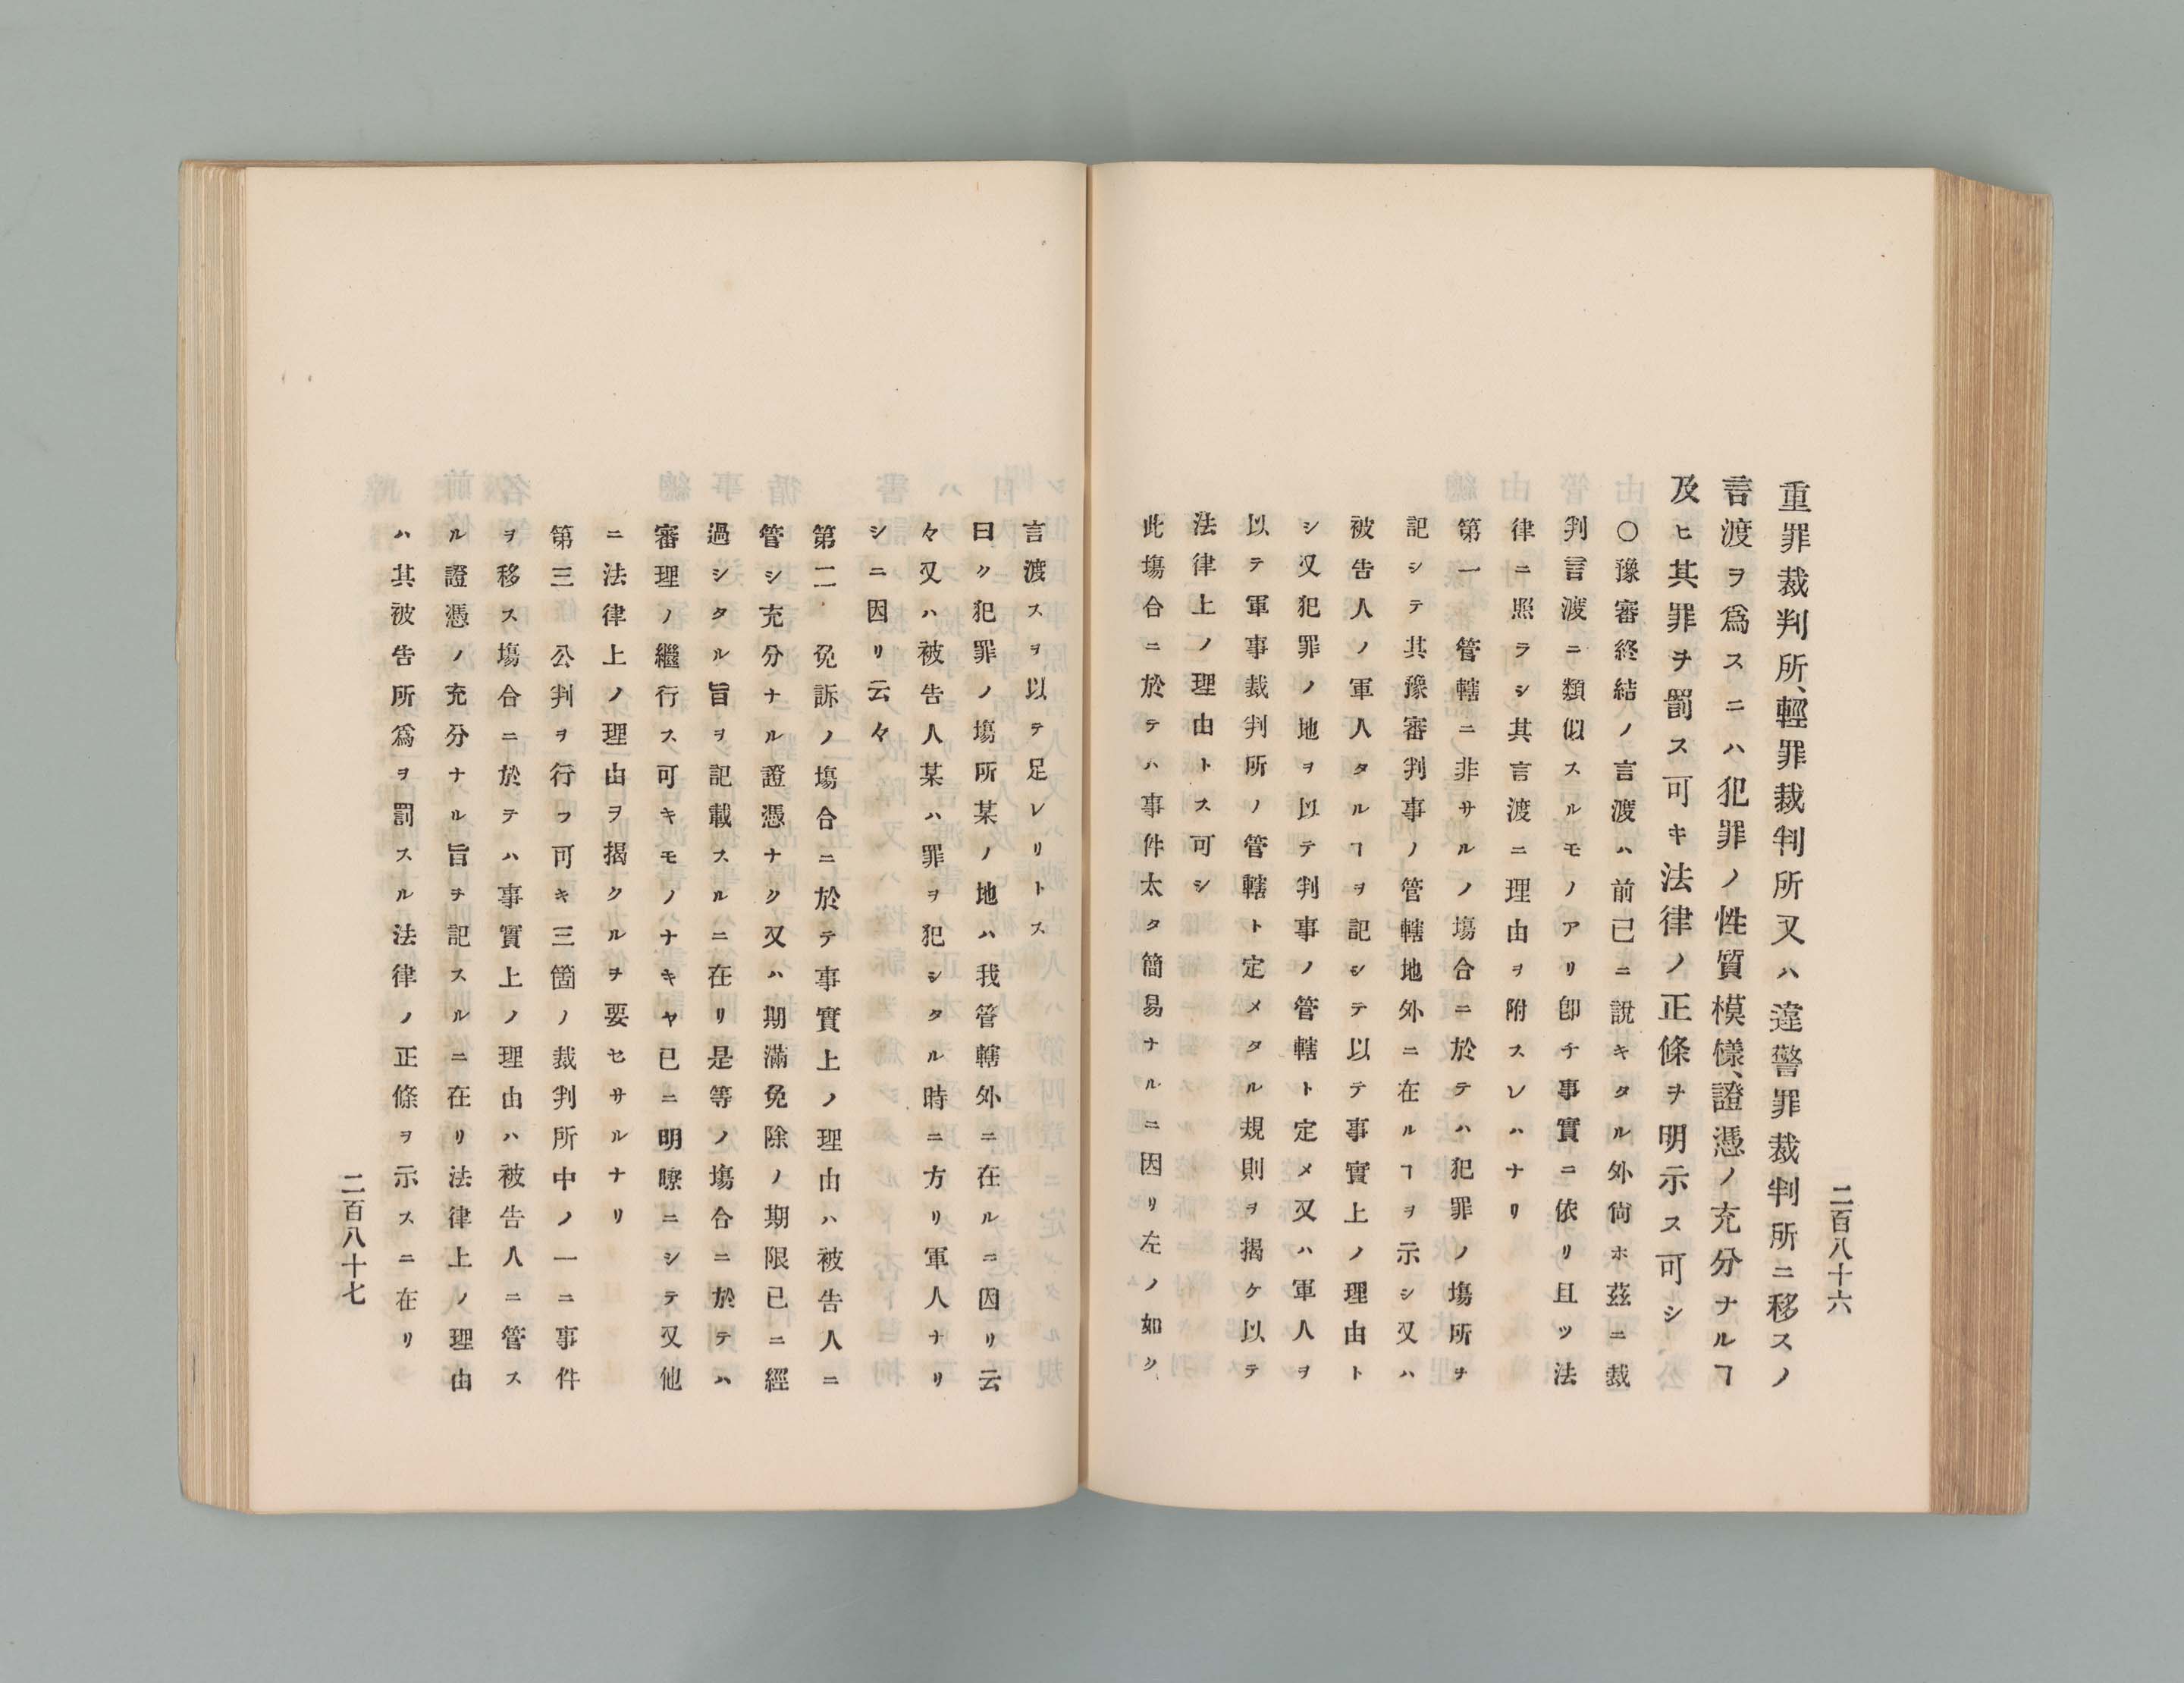 二百八十六
重罪裁判所、輕罪裁判所又ハ違警罪裁判所ニ移スノ
言渡ヲ爲スニハ犯罪ノ性質模樣、證憑ノ充分ナルヿ
及ヒ其罪ヲ罰ス可キ法律ノ正條ヲ明示ス可シ
〇豫審終結ノ言渡ハ前已ニ說キタル外尙ホ茲ニ裁
判言渡ニ類似スルモノアリ卽チ事實ニ依リ且ツ法
律ニ照ラシ其言渡ニ理由ヲ附スレハナリ
第一 管轄ニ非サルノ塲合ニ於テハ犯罪ノ塲所ヲ
記シテ其豫審判事ノ管轄地外ニ在ルヿヲ示シ又ハ
被告人ノ軍人タルヿヲ記シテ以テ事實上ノ理由ト
シ又犯罪ノ地ヲ以テ判事ノ管轄ト定メ又ハ軍人ヲ
以テ軍事裁判所ノ管轄ト定メタル規則ヲ揭ケ以テ
法律上ノ理由トス可シ
此塲合ニ於テハ事件太タ簡易ナルニ因リ左ノ如ク
言渡スヲ以テ足レリトス
曰ク犯罪ノ塲所某ノ地ハ我管轄外ニ在ルニ因リ云
々又ハ被告人某ハ罪ヲ犯シタル時ニ方リ軍人ナリ
シニ因リ云々
第二 免訴ノ塲合ニ於テ事實上ノ理由ハ被告人ニ
管シ充分ナル證憑ナク又ハ期滿免除ノ期限已ニ經
過シタル旨ヲ記載スルニ在リ是等ノ塲合ニ於テハ
審理ノ繼行ス可キモノナキヤ已ニ明瞭ニシテ又他
ニ法律上ノ理由ヲ揭クルヲ要セサルナリ
第三 公判ヲ行フ可キ三箇ノ裁判所中ノ一ニ事件
ヲ移ス塲合ニ於テハ事實上ノ理由ハ被告人ニ管ス
ル證憑ノ充分ナル旨ヲ記スルニ在リ法律上ノ理由
ハ其被告所爲ヲ罰スル法律ノ正條ヲ示スニ在リ
二百八十七